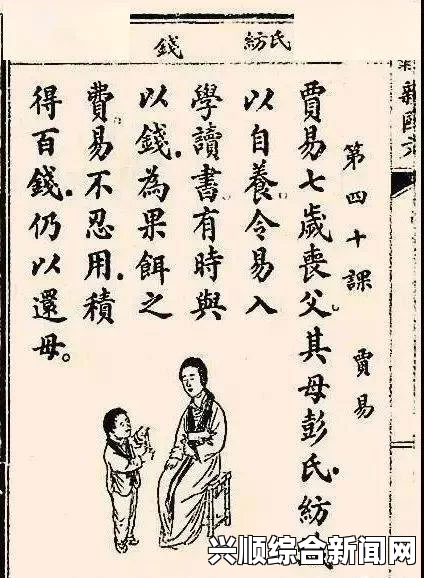 氏紡 錢
新國文
第四十課 賈易
賈易七歲喪父。其母彭氏。紡
以自養。令易入
學讀書。有時與
以錢。為果餌之
費。易不忍用。積
得百錢。仍以還母。
兴顺综合新闻网